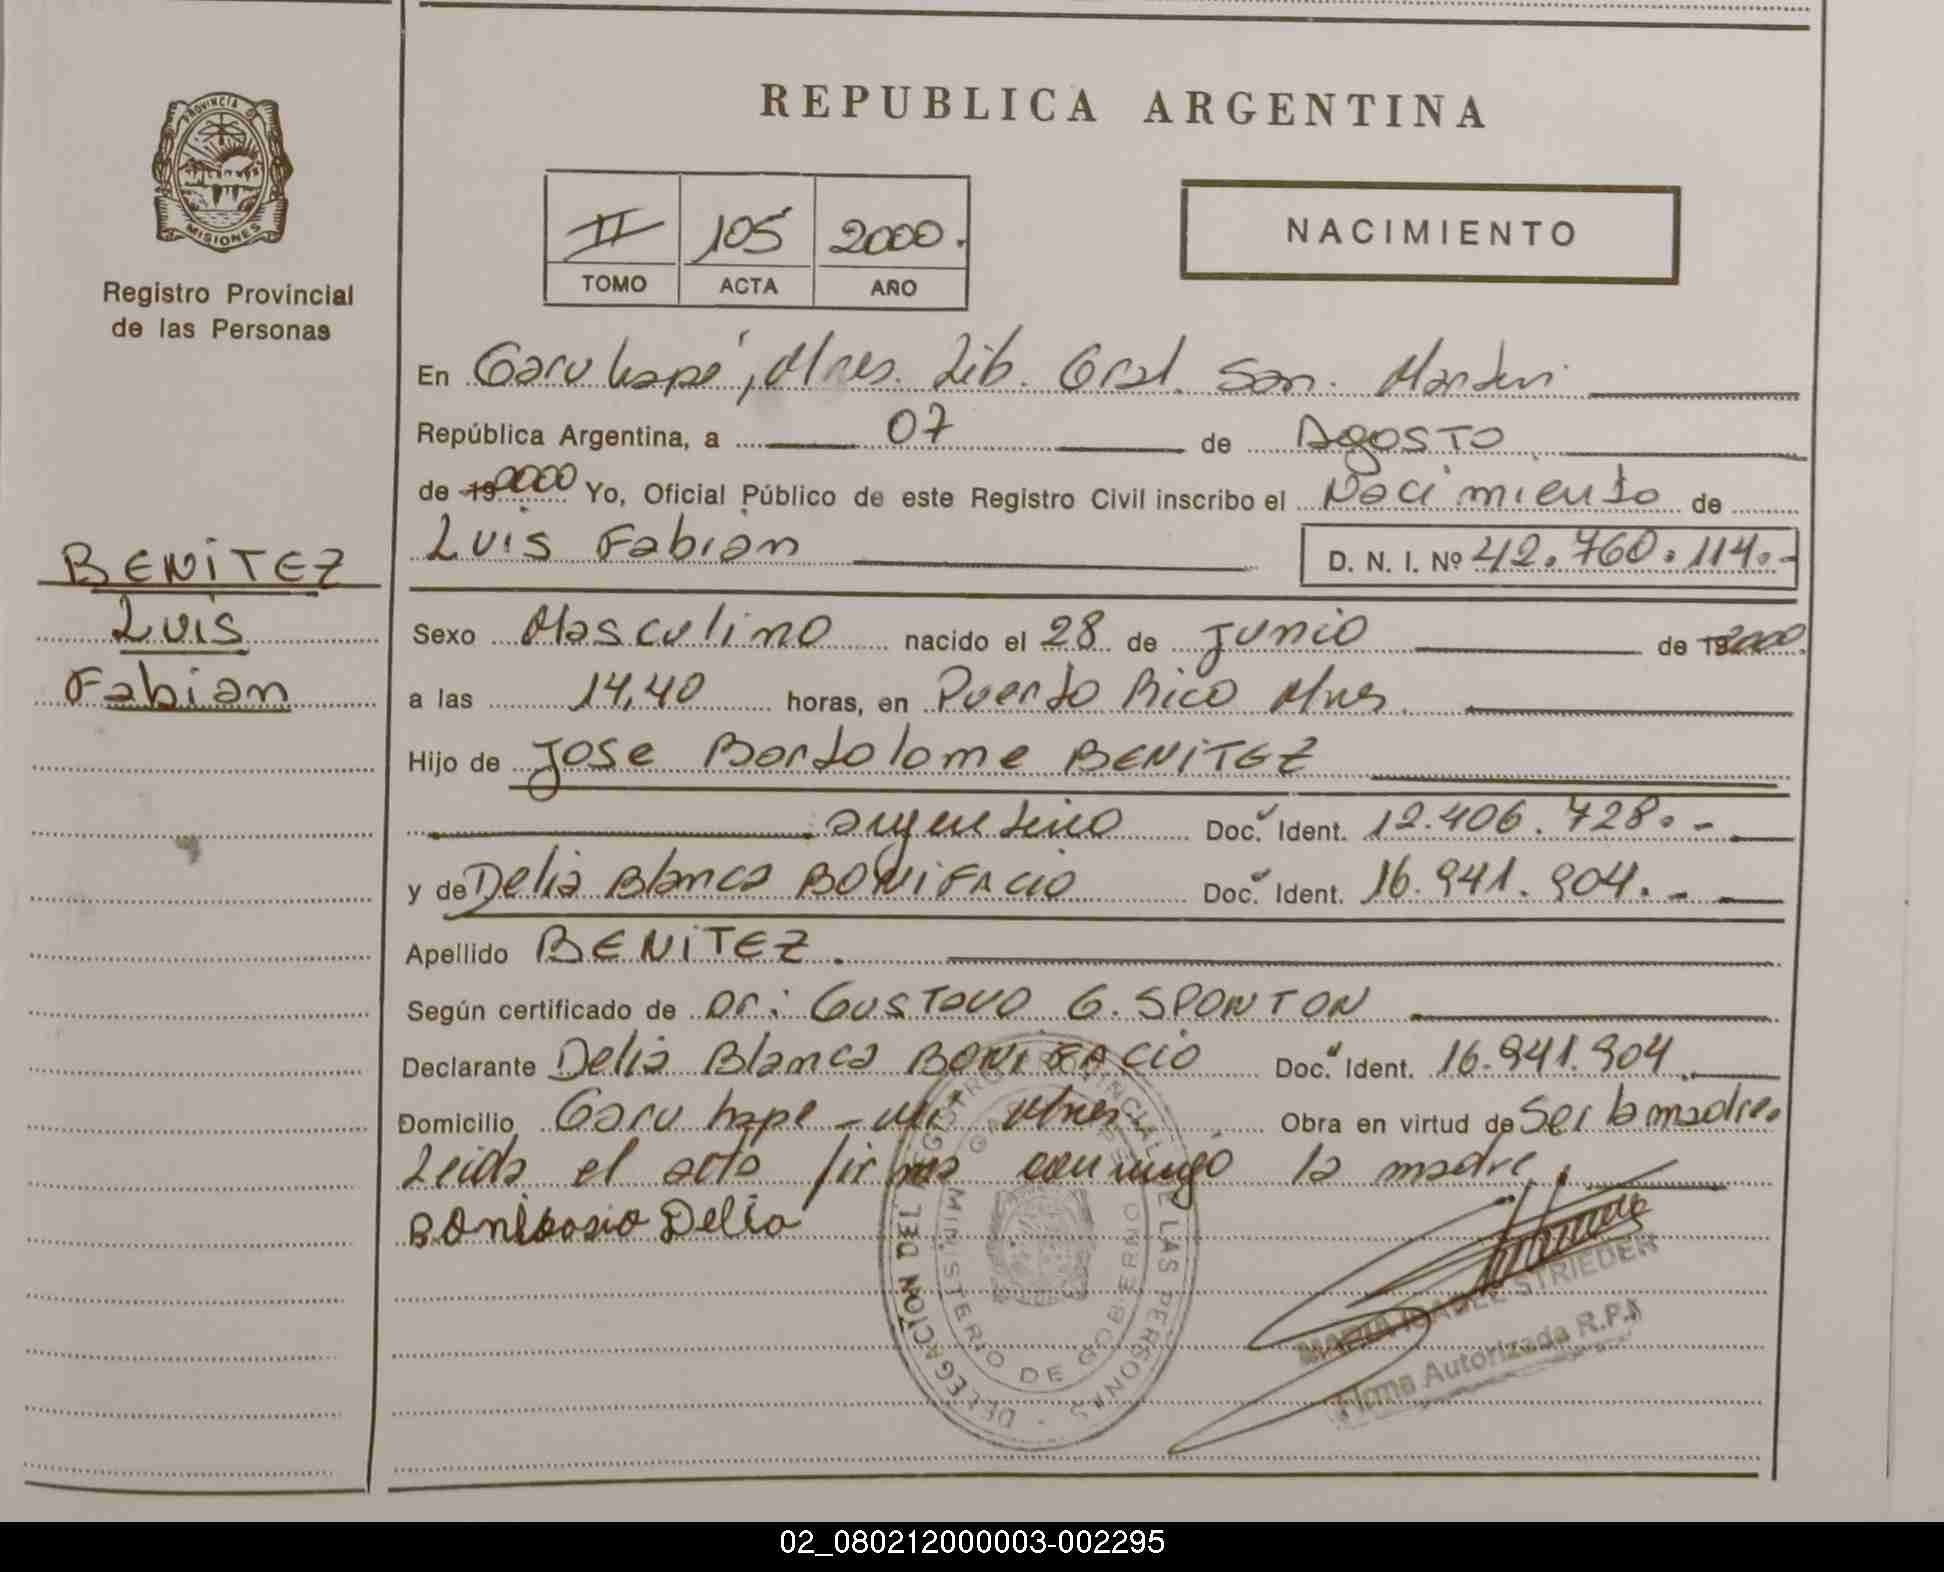 REPUBLICA ARGENTINA
PROVINCIA
MISIONES
Registro Provincial
de las Personas
II 105 2000.
TOMO ACTA AÑO
NACIMIENTO
BENITEZ
Luis
Fabian
En Garuhapé, Mnes. Lib. Gral. San. Martin
República Argentina, a 07 de Agosto
de 192000 Yo, Oficial Público de este Registro Civil inscribo el Nacimiento de
Luis Fabian D. N. I. Nº 42.760.114.-
Sexo Masculino nacido el 28 de Junio de 192000.
a las 14,40 horas, en Puerto Rico Mnes.
Hijo de Jose Bartolome BENITEZ
argentino Doc. Ident. 12.406.728.-
y de Delia Blanca BONIFACIO Doc. Ident. 16.941.904.-
Apellido BENITEZ.
Según certificado de Dr: Gustavo G. SPONTON
Declarante Delia Blanca BONIFACIO Doc. Ident. 16.941.904.
Domicilio Garuhape - Mnes Obra en virtud de Ser la madre.
Leida el acta firma conmigo la madre
Bonifasio Delia
DELEGACION DEL REGISTRO PROVINCIAL DE LAS PERSONAS
MINISTERIO DE GOBIERNO
MARIA ISABEL STRIEDER
Firma Autorizada R.P.P.
02_080212000003-002295